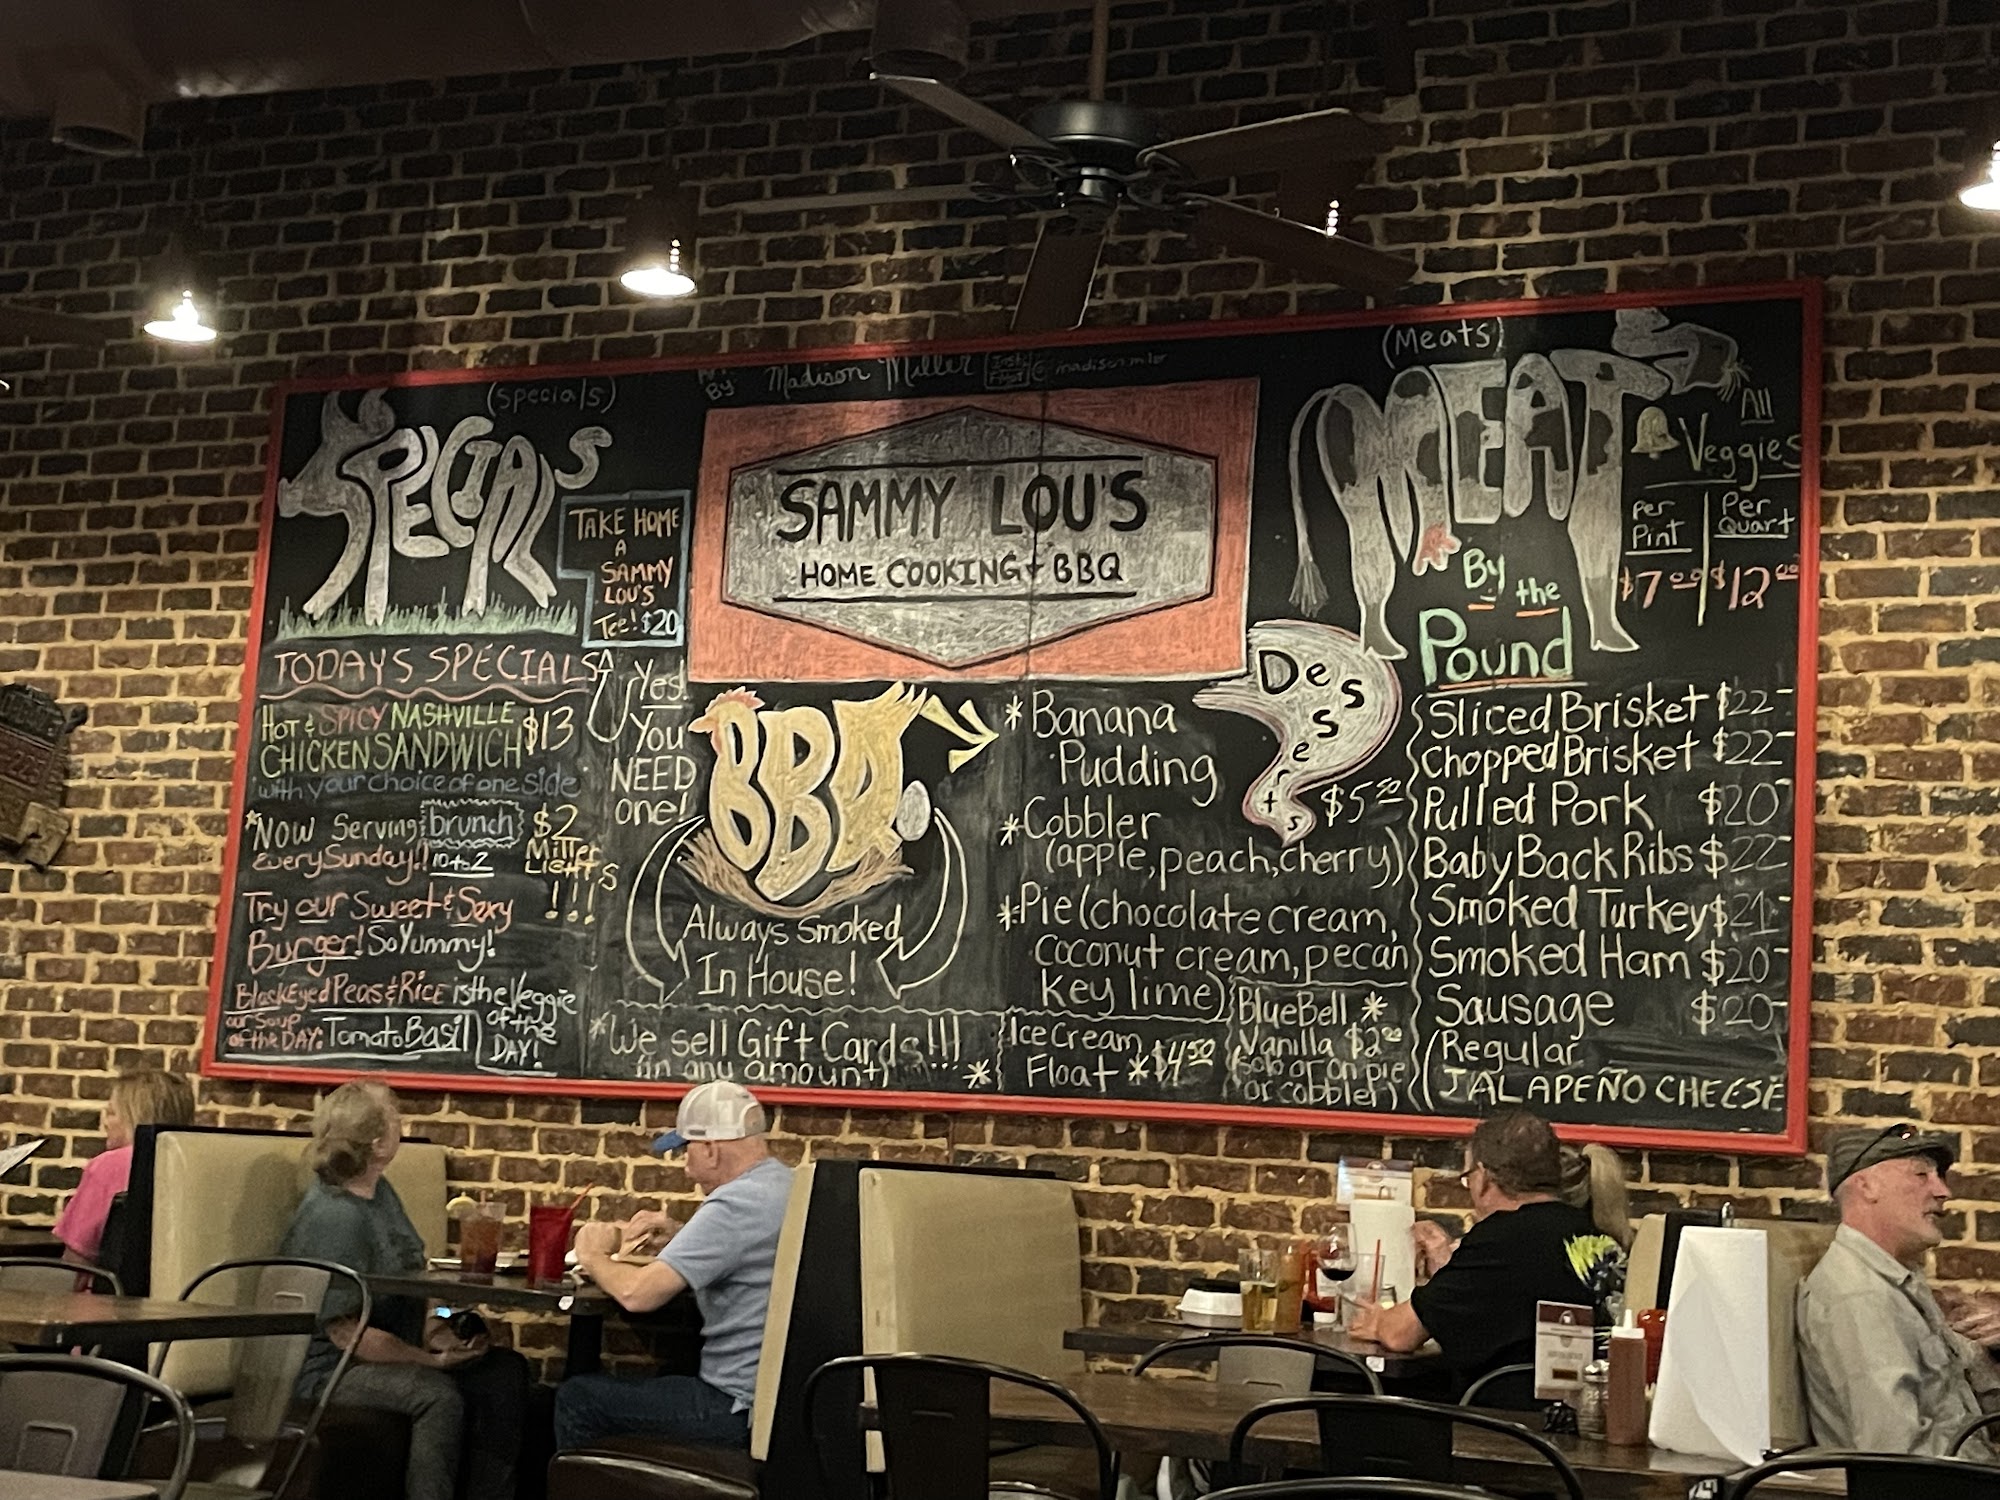 (Specials)
SPECIALS
TAKE HOME
A
SAMMY
LOU'S
Tee! $20
TODAYS SPECIALS
HOT & SPICY NASHVILLE
CHICKEN SANDWICH $13
with your choice of one side
*NOW Serving brunch
every Sunday!! 10 to 2
$2
Miller
LIGHTS
!!!
Try our Sweet & Sexy
Burger! So Yummy!
BlackEyed Peas & Rice is the Veggie
of the
DAY!
our Soup
of the DAY: Tomato Basil
Yes!
You
NEED
one!
By: Madison Miller
SAMMY LOU'S
HOME COOKING + BBQ
BBQ
Always Smoked
In House!
*We sell Gift Cards!!!
(in any amount) *
Desserts
$5.50
*Banana
Pudding
*Cobbler
(apple, peach, cherry)
*Pie (chocolate cream,
coconut cream, pecan
key lime)
Ice Cream
Float * $4.50
BlueBell *
Vanilla $2.00
(solo or on pie
or cobbler)
(Meats)
MEAT
By the
Pound
All
Veggies
Per
Pint
Per
Quart
$7.00 $12.00
Sliced Brisket $22-
Chopped Brisket $22-
Pulled Pork $20-
Baby Back Ribs $22-
Smoked Turkey $21-
Smoked Ham $20-
Sausage $20-
(Regular
JALAPEÑO CHEESE